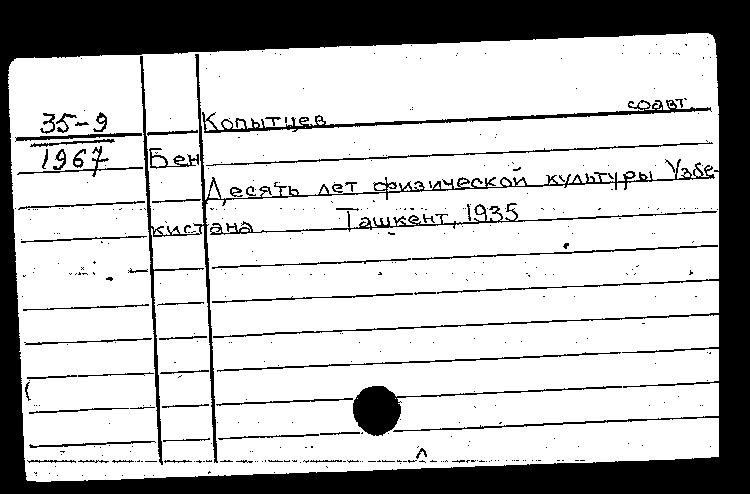 35-9 Копытцев соавт.
1967 Бен
Десять лет физической культуры Узбе-
кистана Ташкент, 1935